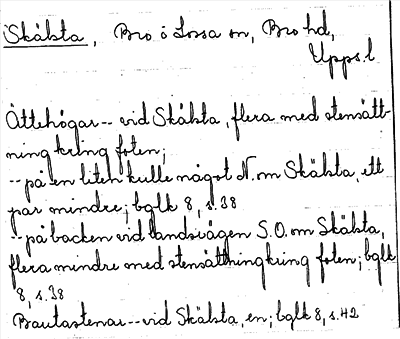 Skäbsta, Bro o Lossa sn, Bro hd,
Upps.l
Ättehögar -- vid Skäbsta, flera med stensätt-
ning kring foten;
-- på en liten kulle något N. om Skäbsta, ett
par mindre; bglk 8, s.38
-- på backen vid landsvägen S.O. om Skäbsta,
flera mindre med stensättning kring foten; bglk
8, s.38
Bautastenar -- vid Skäbsta, en; bglk 8, s.42